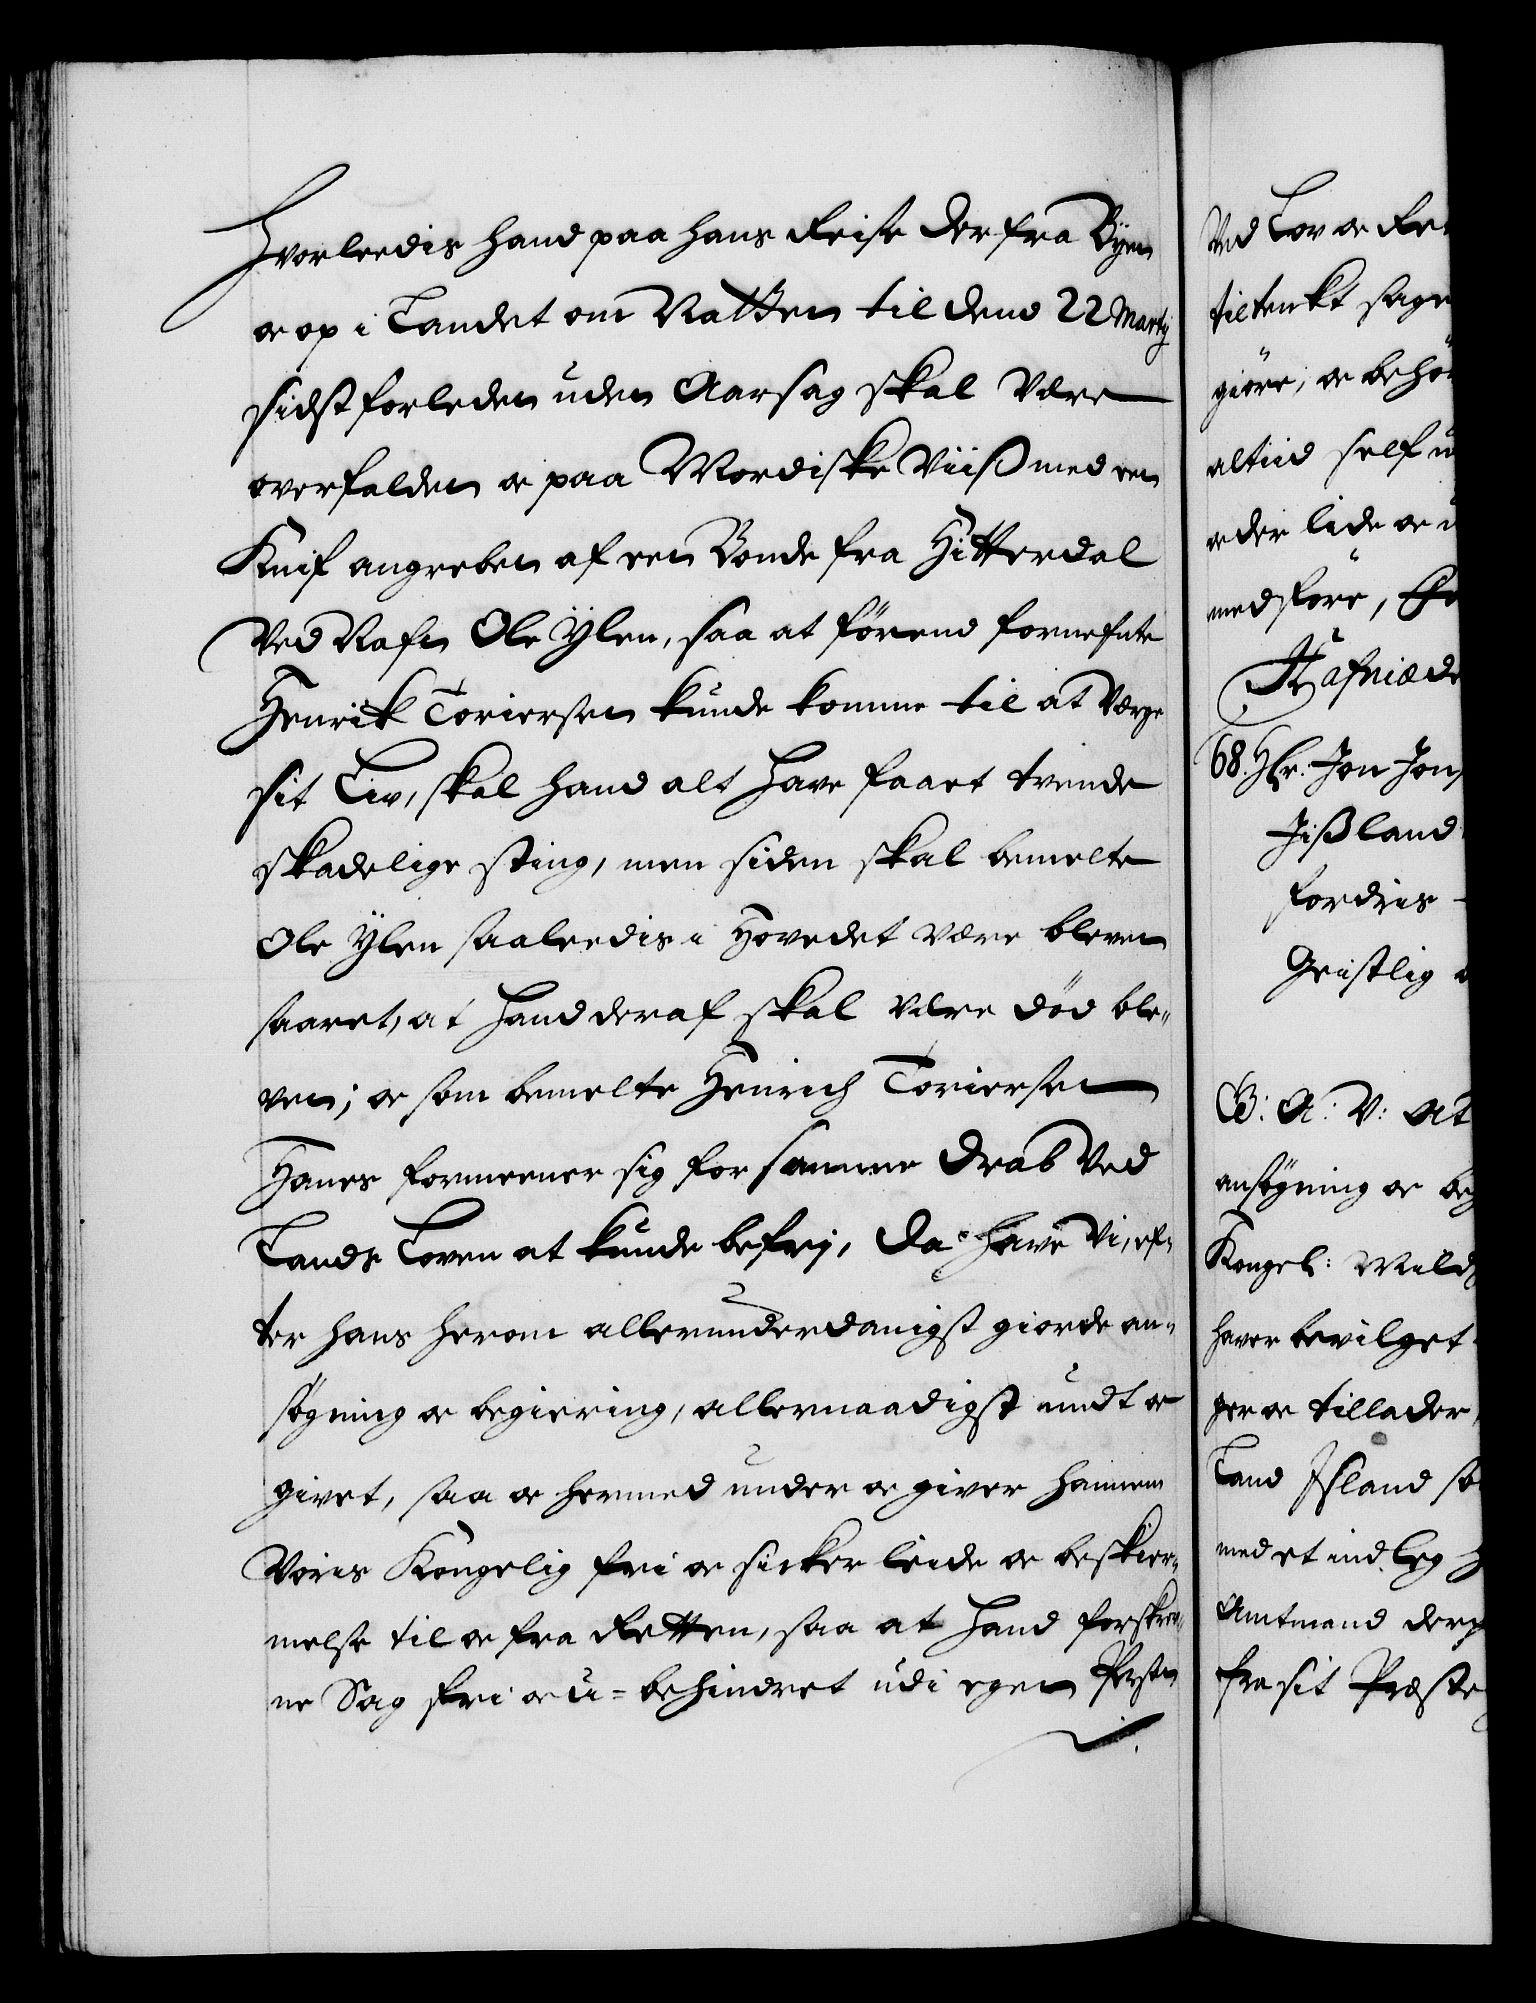 Hvorledis hand paa hans Reise der fra Byen
oc op i Landet om Natten til dend 22 Martij
sidst forleden uden Aarsag skal være
overfalden oc paa Mordiske Viiß med een
Knif angreben af een Bonde fra Hitterdal
Ved Nafn Ole Ylen, saa at förend fornefnte
Henrik Toriersen kunde komme til at Værge
sit Liv, skal hand alt have faaet trende
skadelige sting, men siden skal bemelte
Ole Ylen saaledis i Hovedet være bleven
saaret, at hand deraf skal være död ble„
ven; oc som bemelte Henrich Toriersen
Hanes formeener sig for samme Drab Ved
Lands Loven at kunde befrj, Da have Vi, ef„
ter hans herom allerunderdanigst giorde an„
søgning oc begiering, allernaadigst undt oc
givet, saa oc hermed under oc giver hannem
Voris Kongelig fri oc sicker leide oc beskier„
melse til oc fra Retten, saa at hand forskrev„
ne Sag fri oc u-behindret udi egen Person
Ved Lov oc Ret
tiltenkt sagen
giöre, oc behö
altiid self u
oc der lide oc u
medföre,
Hafniæ d
68. Hr. Jon Jons
Jißland
fordris
Geistlig
G: A: V: At
ansøgning oc beg
Kongel: Mild
haver bevilget
ger oc tillader,
Land Jsland
med et indleg
Amtmand der
fra sit Præste